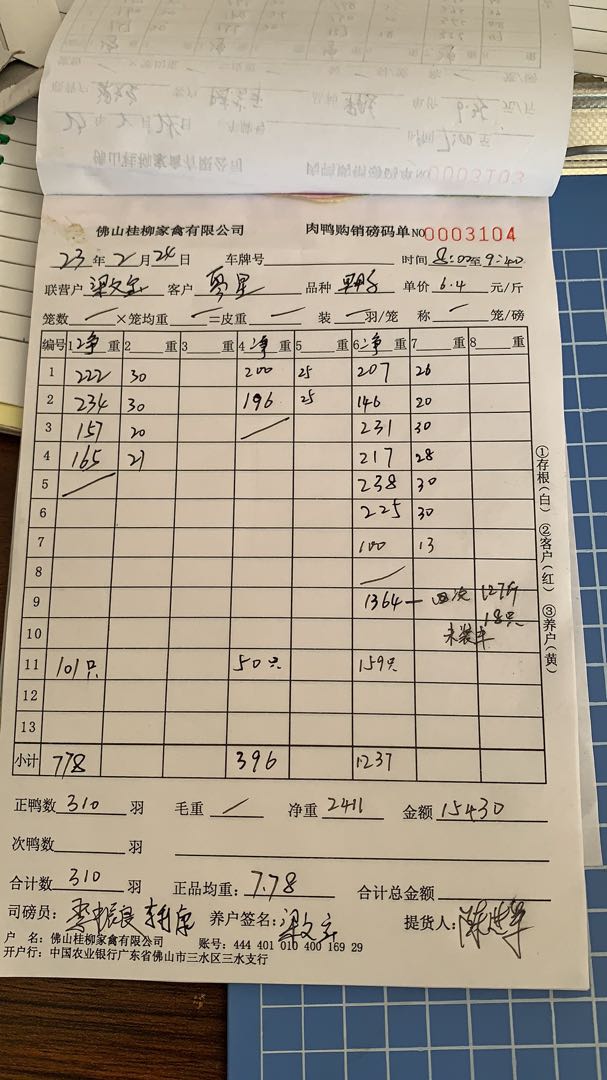 0003103
佛山桂柳家禽有限公司 肉鸭购销磅码单 NO 0003104
23年2月24日 车牌号 时间 8:00至9:40
联营户 梁文宝 客户 星 品种 单价 6.4 元/斤
笼数 — ×笼均重 — =皮重 — 装 — 羽/笼 称 — 笼/磅
编号 1 净 重 2 重 3 重 4 净 重 5 重 6 净 重 7 重 8 重
1 222 30 200 25 207 26
2 234 30 196 25 146 20
3 157 20 / 231 30
4 165 21 217 28
5 / 238 30
6 225 30
7 100 13
8 /
9 1364 — 次 127斤
18只
10 未装车
11 101只 50只 159只
12
13
小计 778 396 1237
正鸭数 310 羽 毛重 / 净重 2411 金额 15430
次鸭数 羽
合计数 310 羽 正品均重: 7.78 合计总金额
司磅员: 养户签名: 梁文宝 提货人:
户 名: 佛山桂柳家禽有限公司 账号: 444 401 010 400 169 29
开户行: 中国农业银行广东省佛山市三水区三水支行
①存根(白) ②客户(红) ③养户(黄)